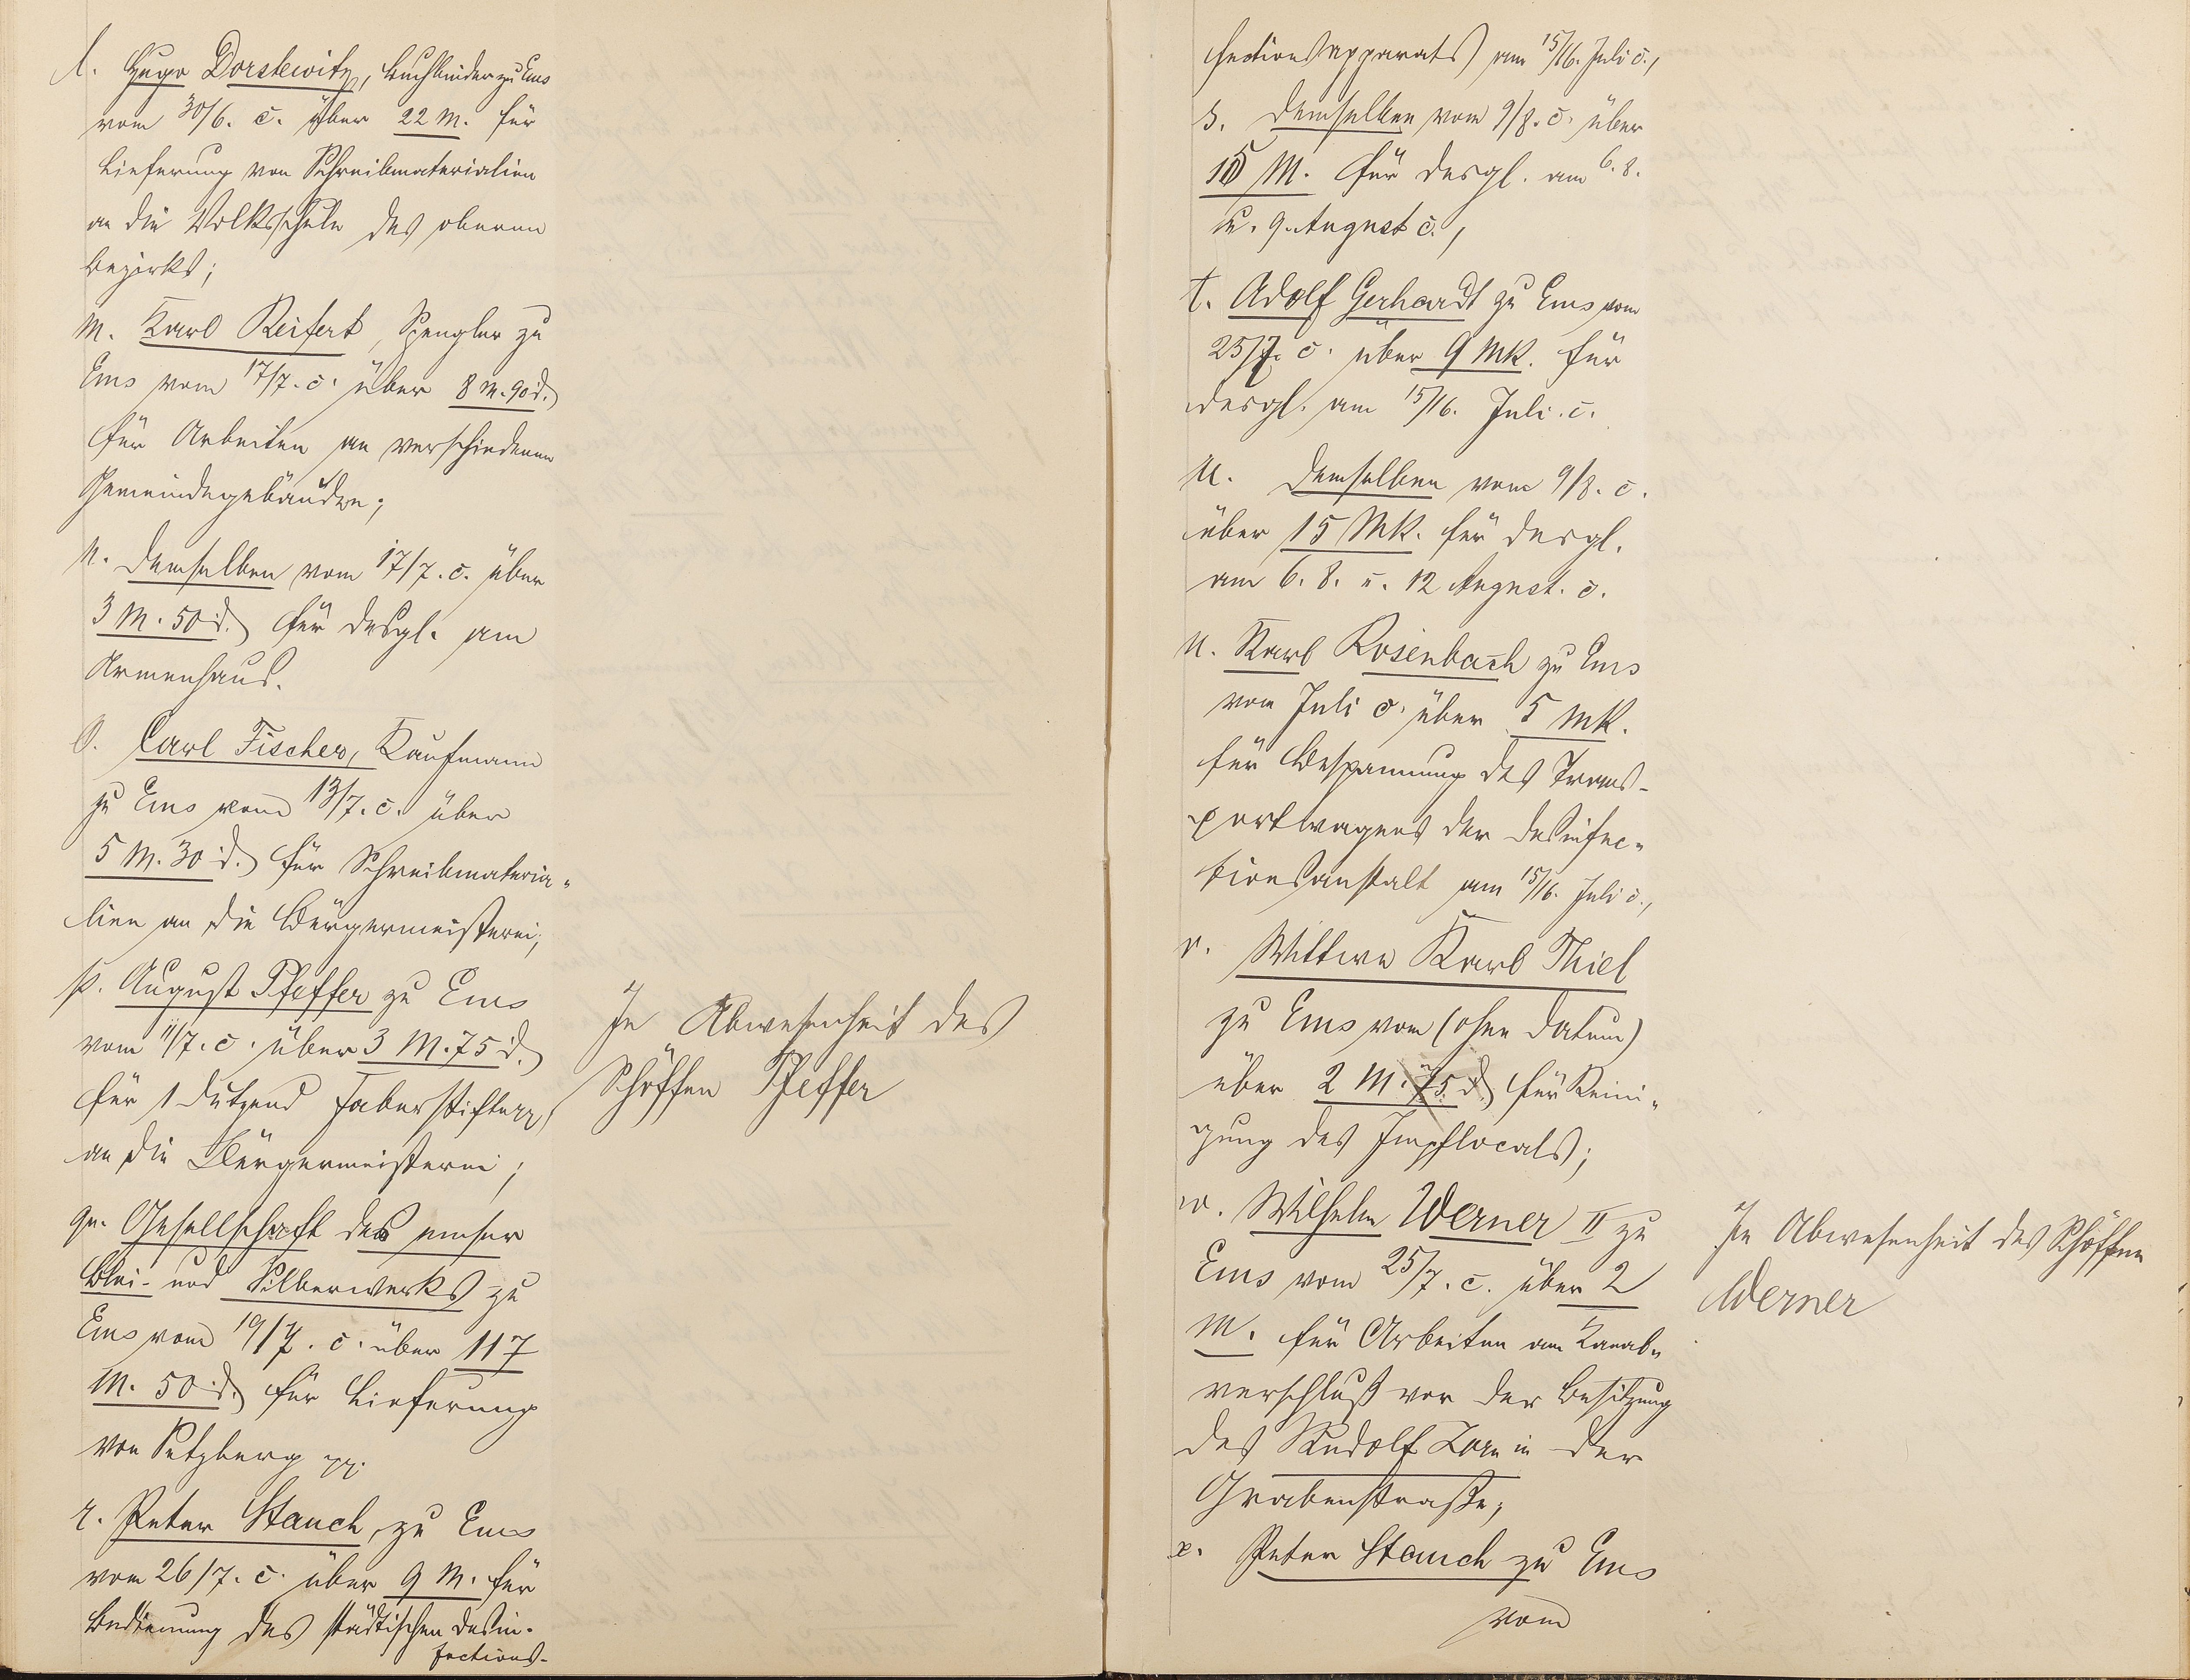 l. Hugo Dorstewitz, Buchbinder zu Ems
vom 30/6. c. über 22 M. für
Lieferung von Schreibmaterialien
an die Volksschule des oberen
Bezirks;
m. Karl Reifert, Spengler zu
Ems vom 17/7. c. über 8 M. 90 d.
für Arbeiten an verschiedenen
Gemeindegebäuden;
n. demselben vom 17/7. c. über
3 M. 50 d. für desgl. am
Armenhaus.
o. Carl Fischer, Kaufmann
zu Ems vom 13/7. c. über
5 M. 30 d. für Schreibmateria-
lien an die Bürgermeisterei;
p. August Pfeffer zu Ems
vom 11/7. c. über 3 M. 75 d.
für 1 Dutzend Faberstifte
an die Bürgermeisterei;
In Abwesenheit des
Schöffen Pfeffer
q. Gesellschaft des emser
Blei- und Silberwerks zu
Ems vom 19/7. c. über 117
M. 50 d. für Lieferung
von Setzberg pp.
r. Peter Stauch, zu Ems
vom 26/7. c. über 9 M. für
Bedienung des städtischen Desin-
fections-
fectionsapparats am 15/16. Juli c.,
s. demselben vom 9/8. c. über
15 M. für desgl. am 6. 8.
u. 9. August c.,
t. Adolf Gerhardt zu Ems vom
25/7. c. über 9 Mk. für
desgl. am 15/16. Juli. c.
u. demselben vom 9/8. c.
über 15 Mk. für desgl.
am 6. 8. u. 12 August. c.
u. Karl Rosenbach zu Ems
vom Juli c. über 5 Mk.
für Bespannung des Trans-
portwagens der Desinfec-
tionsanstalt am 15/16. Juli c.,
v. Wittwe Karl Thiel
zu Ems vom (ohne Datum)
über 2 M. 75 d. für Reini-
gung des Impflocals;
w. Wilhelm Werner II zu
Ems vom 25/7. c. über 2
M. für Arbeiten am Kanal-
verschluß vor der Besitzung
des Rudolf Zorn in der
Grabenstraße;
In Abwesenheit des Schöffen
Werner
x. Peter Stauch zu Ems
vom